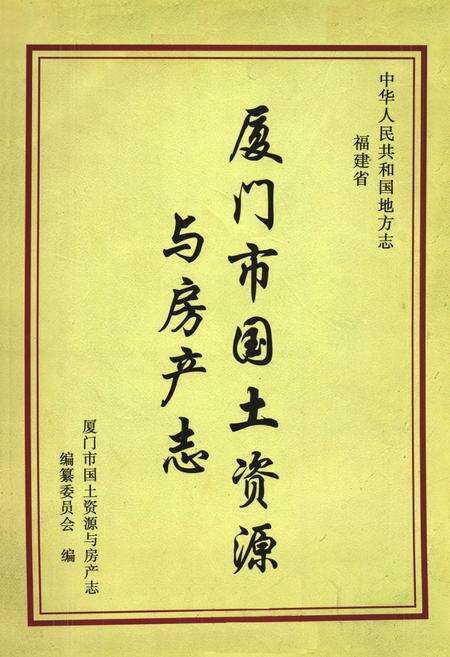 中华人民共和国地方志
福建省
厦门市国土资源
与房产志
厦门市国土资源与房产志
编纂委员会 编